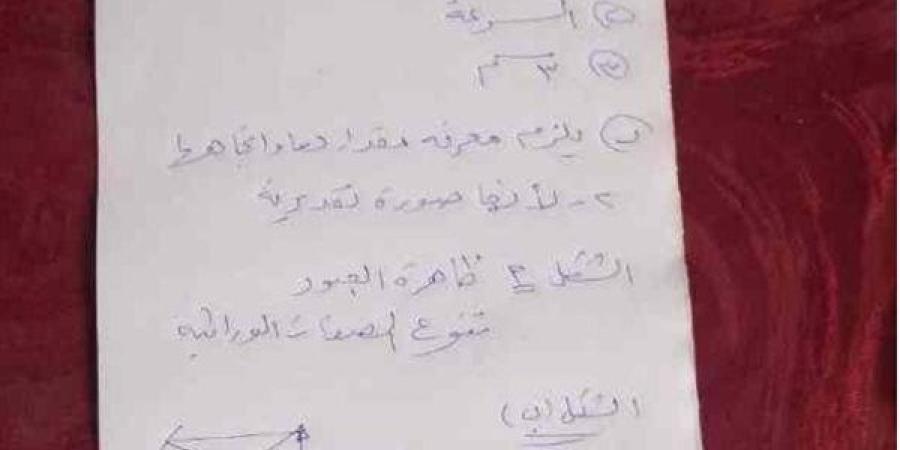 ٢ السرعة
٣ ٣ سم
د يلزم معرفة مقدارهما واتجاهها
٢- لأنها صورة تقديرية
الشكل ٢ ظاهرة العبور
تنوع الصفات الوراثية
الشكل (ب)